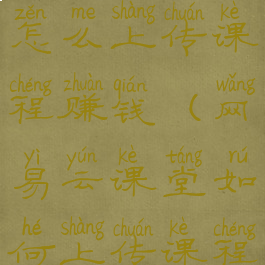 zěn me shàng chuán kè
怎么上传课
chéng zhuàn qián wǎng
程赚钱（网
yì yún kè táng rú
易云课堂如
hé shàng chuán kè chéng
何上传课程